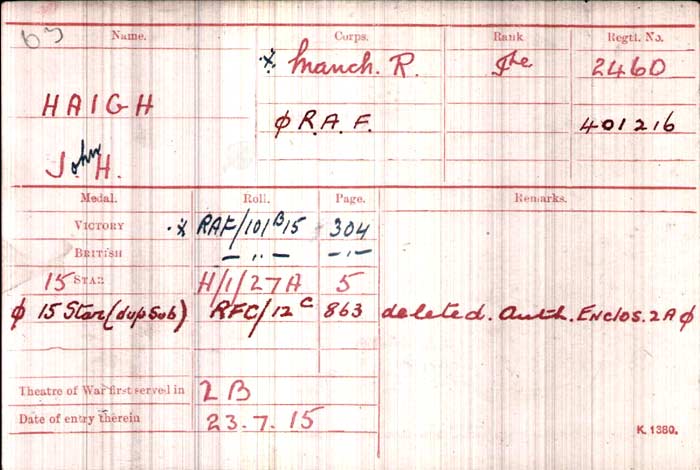 Name. Corps. Rank. Regtl. No.
·x· Manch. R. Pte 2460
HAIGH
φ R.A.F. 401216
John H.
Medal. Roll. Page. Remarks.
VICTORY ·x RAF/101B15 304
BRITISH — „ — — „ —
15 STAR H/1/27A 5
φ 15 Star (dup sub) RFC/12C 863 deleted. Auth. Enclos. 2A φ
Theatre of War first served in 2B
Date of entry therein 23.7.15
K. 1380.